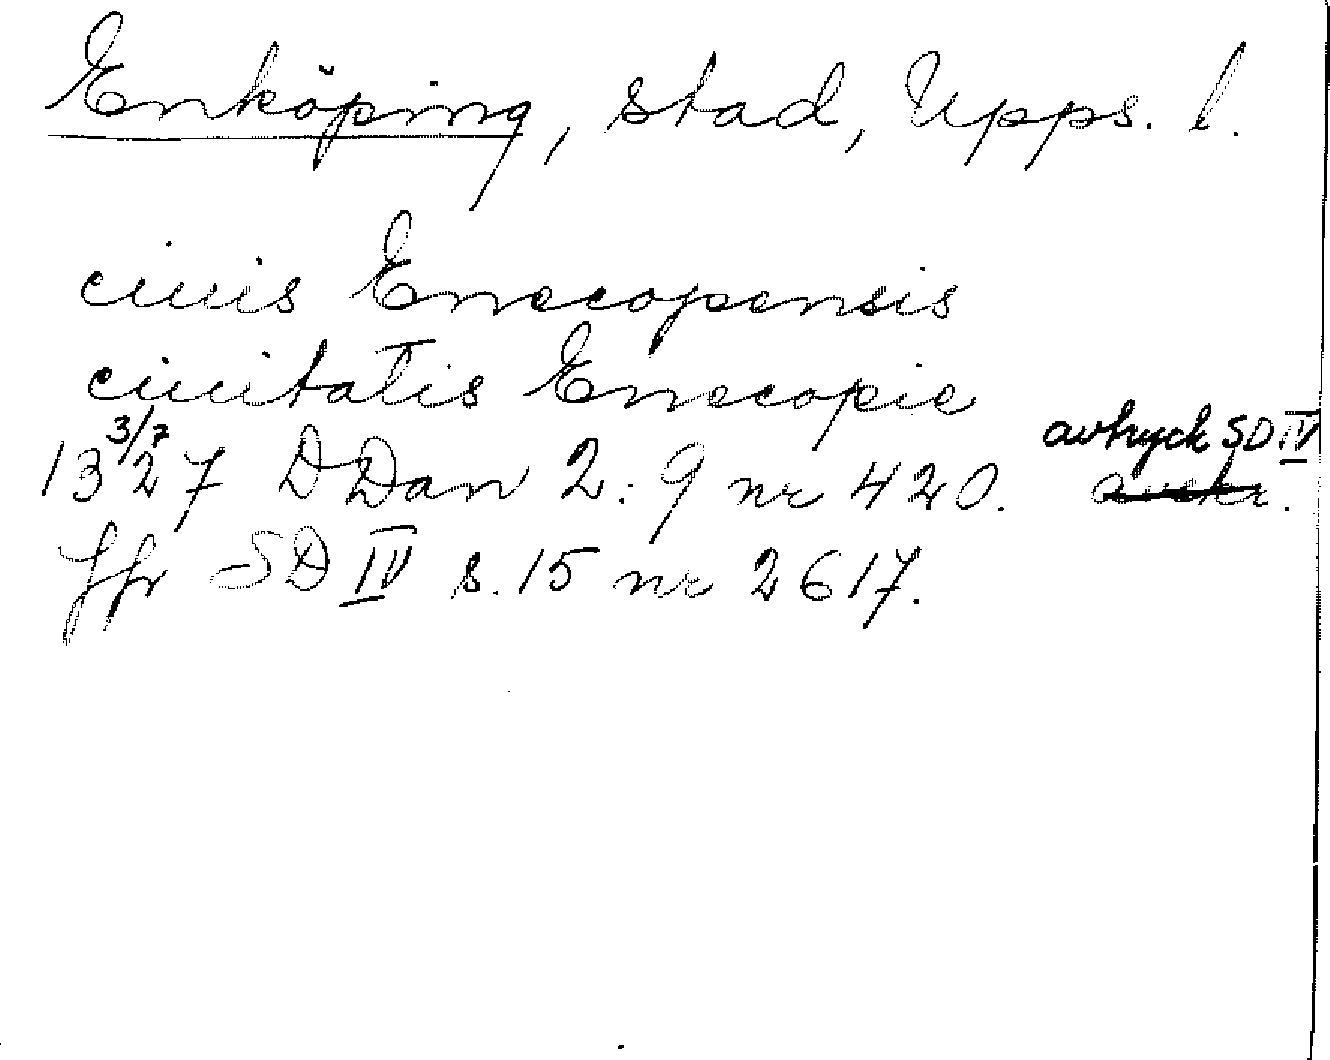 Enköping, stad, Upps. l.
ciuis Enecopensis
ciuitatis Enecopie
avtryck SD IV
13 3/7 27 DDan 2:9 nr 420.
Jfr SD IV s. 15 nr 2617.